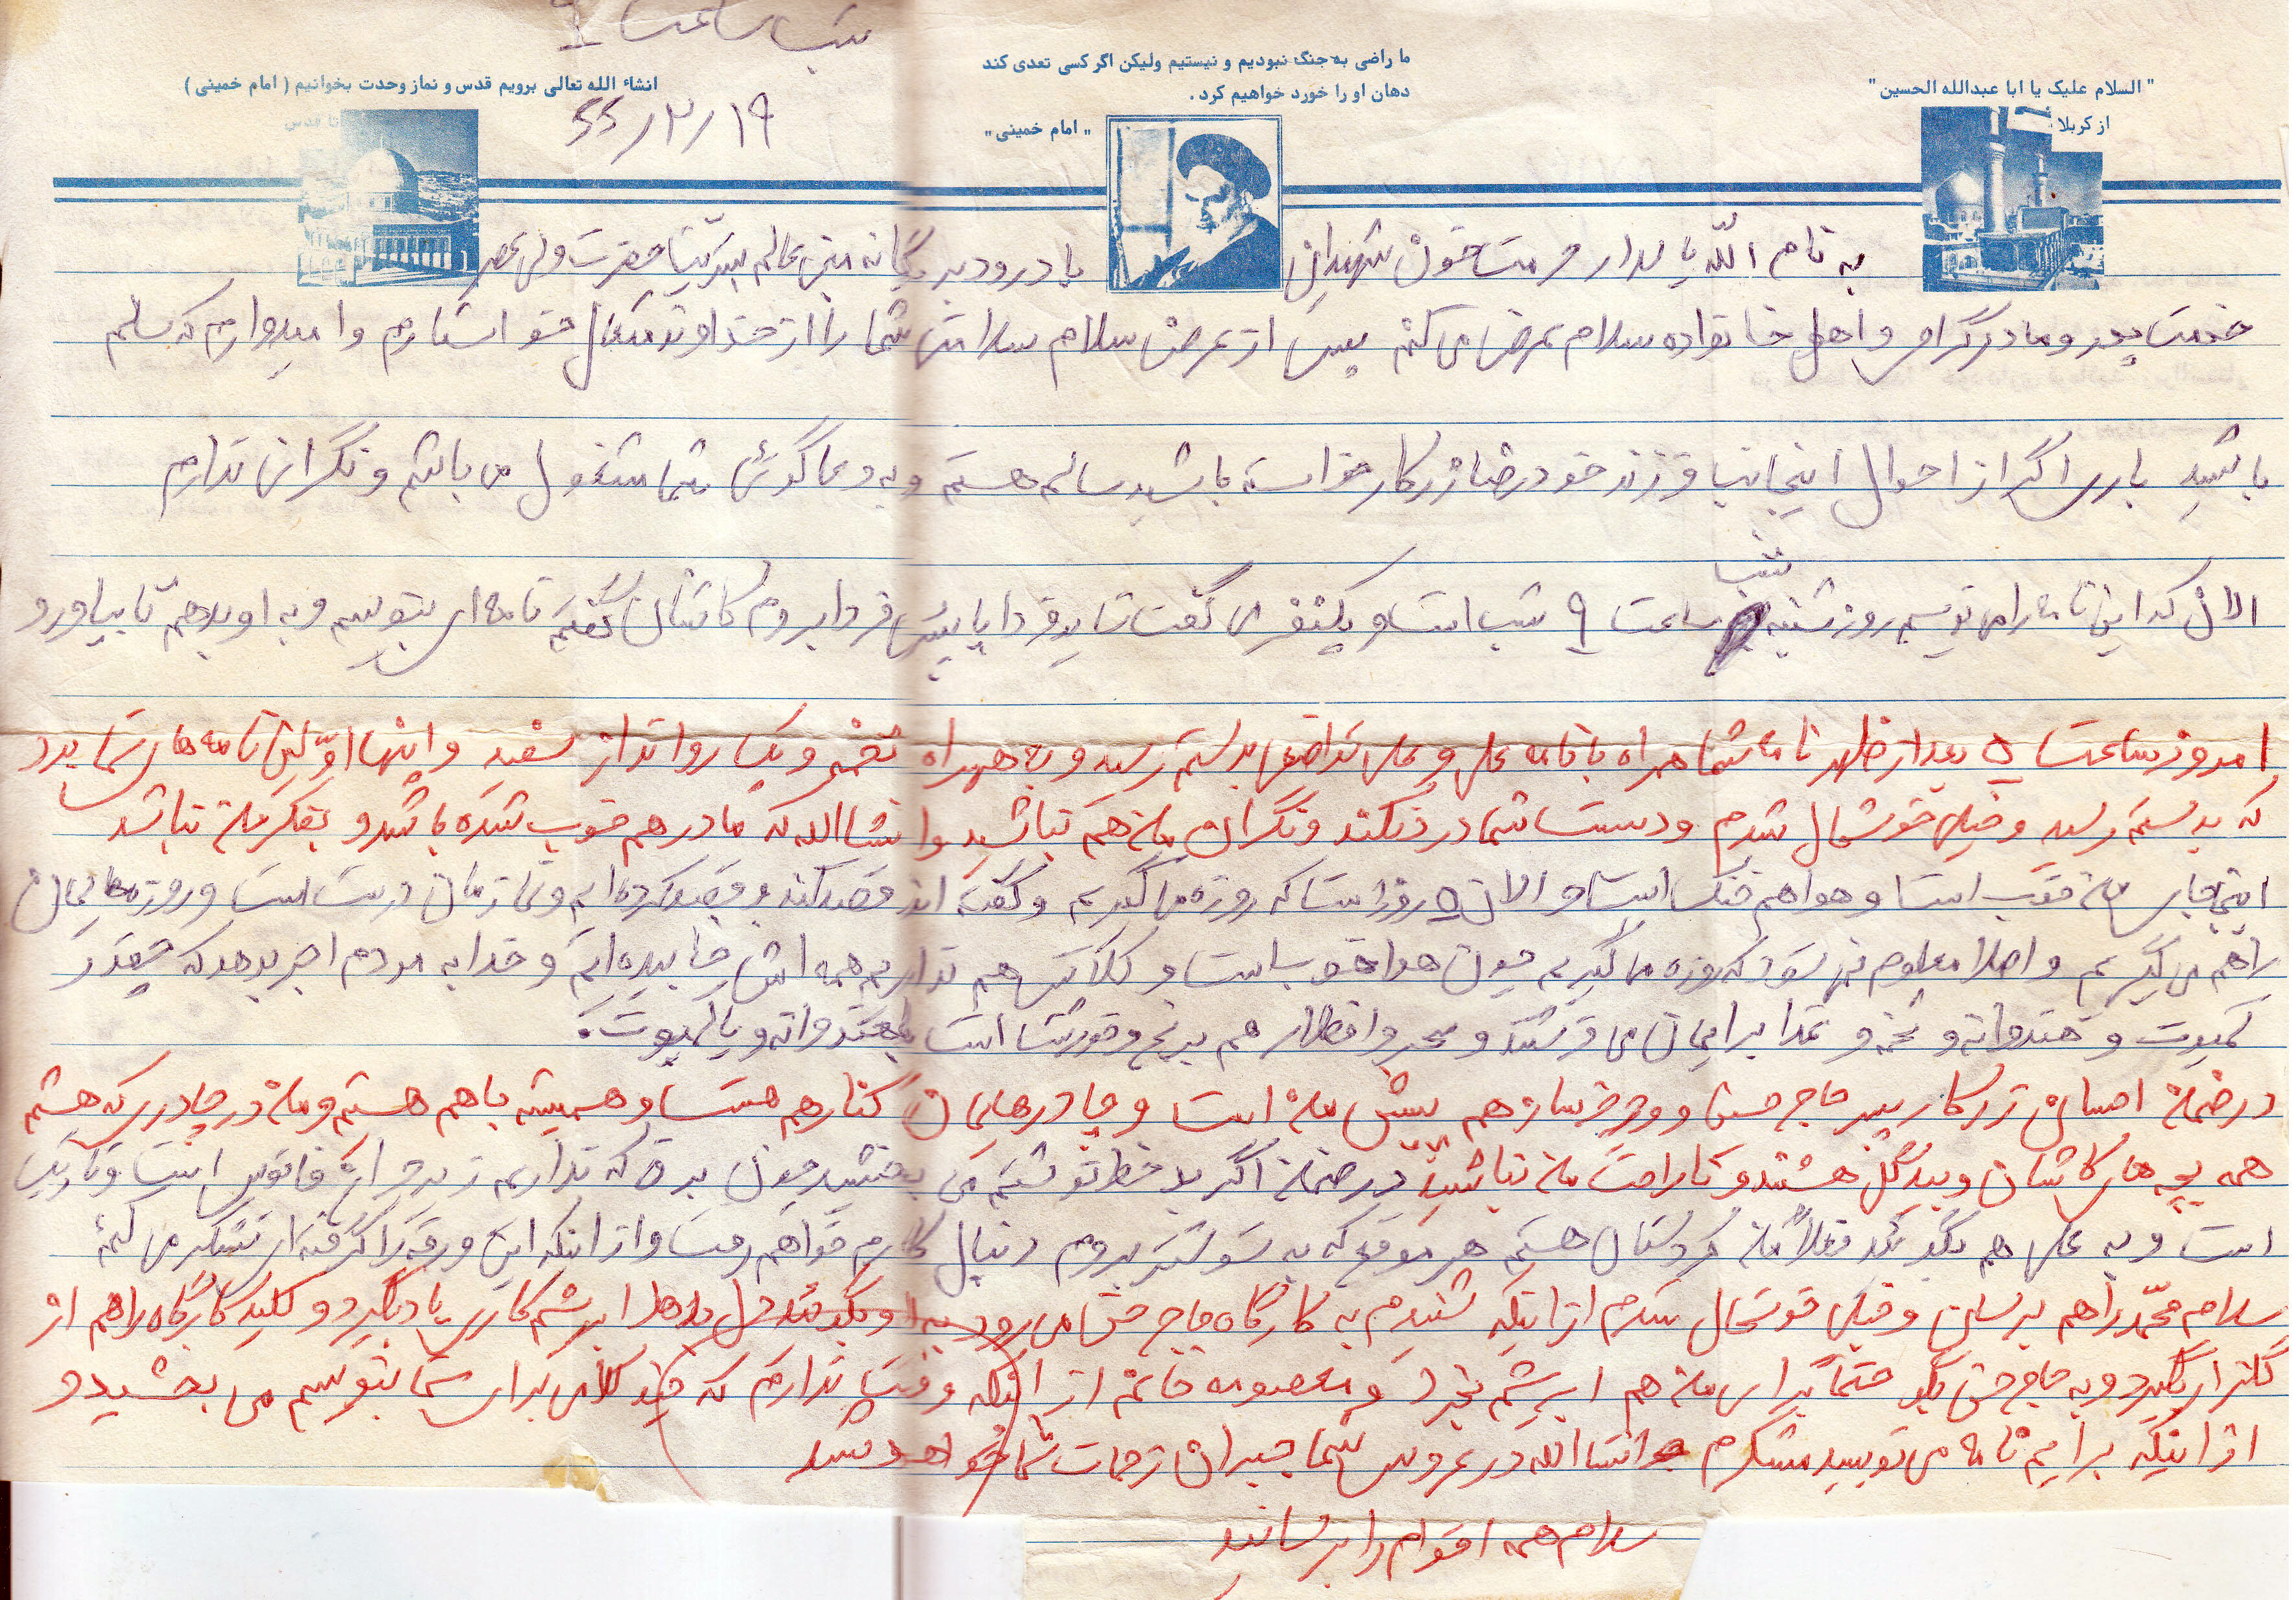 شب ساعت ۹
انشاء الله تعالی برویم قدس و نماز وحدت بخوانیم ( امام خمینی )
ما راضی به جنگ نبودیم و نیستیم ولیکن اگر کسی تعدی کند
دهان او را خورد خواهیم کرد .
" امام خمینی "
" السلام علیک یا ابا عبدالله الحسین "
از کربلا
تا قدس
۶۶/۲/۱۹
به نام الله پاسدار حرمت خون شهیدان با درود بر یگانه منجی عالم بشریت حضرت ولی عصر
خدمت پدر و مادر گرامی و اهل خانواده سلام عرض می کنم پس از عرض سلام سلامتی شما را از خداوند متعال خواستارم و امیدوارم که سالم
باشید باری اگر از احوال اینجانب فرزند خود رضا زرکار خواسته باشید سالم هستم و به دعا گوئی شما مشغول می باشم و نگرانی ندارم
الان که این نامه را می نویسم روز شنبه شب ساعت ۹ شب است و یکنفری گفت شاید فردا یا پس فردا بروم کاشان گفتم نامه ای بنویسم و به او بدهم تا بیاورد
امروز ساعت ۵ بعد از ظهر نامه شما همراه با نامه علی و علی بدستم رسید و به همراه تخمه و یک روانداز سفید و اینها اوّلین نامه های شما بود
که بدستم رسید و خیلی خوشحال شدم و دست شما درد نکند و نگران من هم نباشید و انشاالله که مادر هم خوب شده باشد و بفکر من نباشد
اینجا جای من خوب است و هوا هم خنک است و الان ۵ روز است که روزه می گیریم و گفته اند قصد کنید و قصد کرده ایم و نمازمان درست است و روزه هایمان
را هم می گیریم و اصلا معلوم نمی شود که روزه می گیریم چون هوا خوب است و کلاس هم نداریم همه اش خابیده ایم و خدا به مردم اجر بدهد که چقدر
کمپوت و هندوانه و تخمه و غذا برایمان می فرستند و سحر و افطار هم برنج و خورشت است با هندوانه و یا کمپوت.
در ضمن احسان زرکار پسر حاج حسن و هم پیش من است و چادرهایمان کنار هم هست و همیشه با هم هستم و من در چادری که هستم
همه بچه های کاشان و بیدگل هستند و ناراحت من نباشید در ضمن اگر بد خط نوشتم می بخشید چون برق که نداریم زیر چراغ فانوس است و تاریک
است و به علی هم بگوئید فعلاً من کردستان هستم هر موقع که به شوشتر بروم دنبال کارم خواهم رفت و از اینکه این ورقه را گرفته ای تشکر می کنم
سلام محمّد را هم برسان و خیلی خوشحال شدم از اینکه شنیدم به کارگاه حاج حسن می رود به او بگوئید ابریشم کاری یاد بگیرد و کلید کارگاه را هم از
گلزار بگیرد و به حاج حسن بگو حتماً برای من هم ابریشم بخرد و معصومه خانم از اینکه وقت ندارم که چند کلامی برای شما بنویسم می بخشید و
از اینکه برایم نامه می نویسید متشکرم انشاالله در عروسی شما جبران زحمات شما خواهد شد
سلام همه اقوام را برسانید